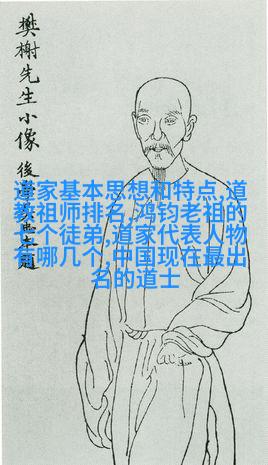 樊榭先生小像
後學
道家基本思想和特点,道
教祖师排名,鸿钧老祖的
七个徒弟,道家代表人物
有哪几个,中国现在最出
名的道士